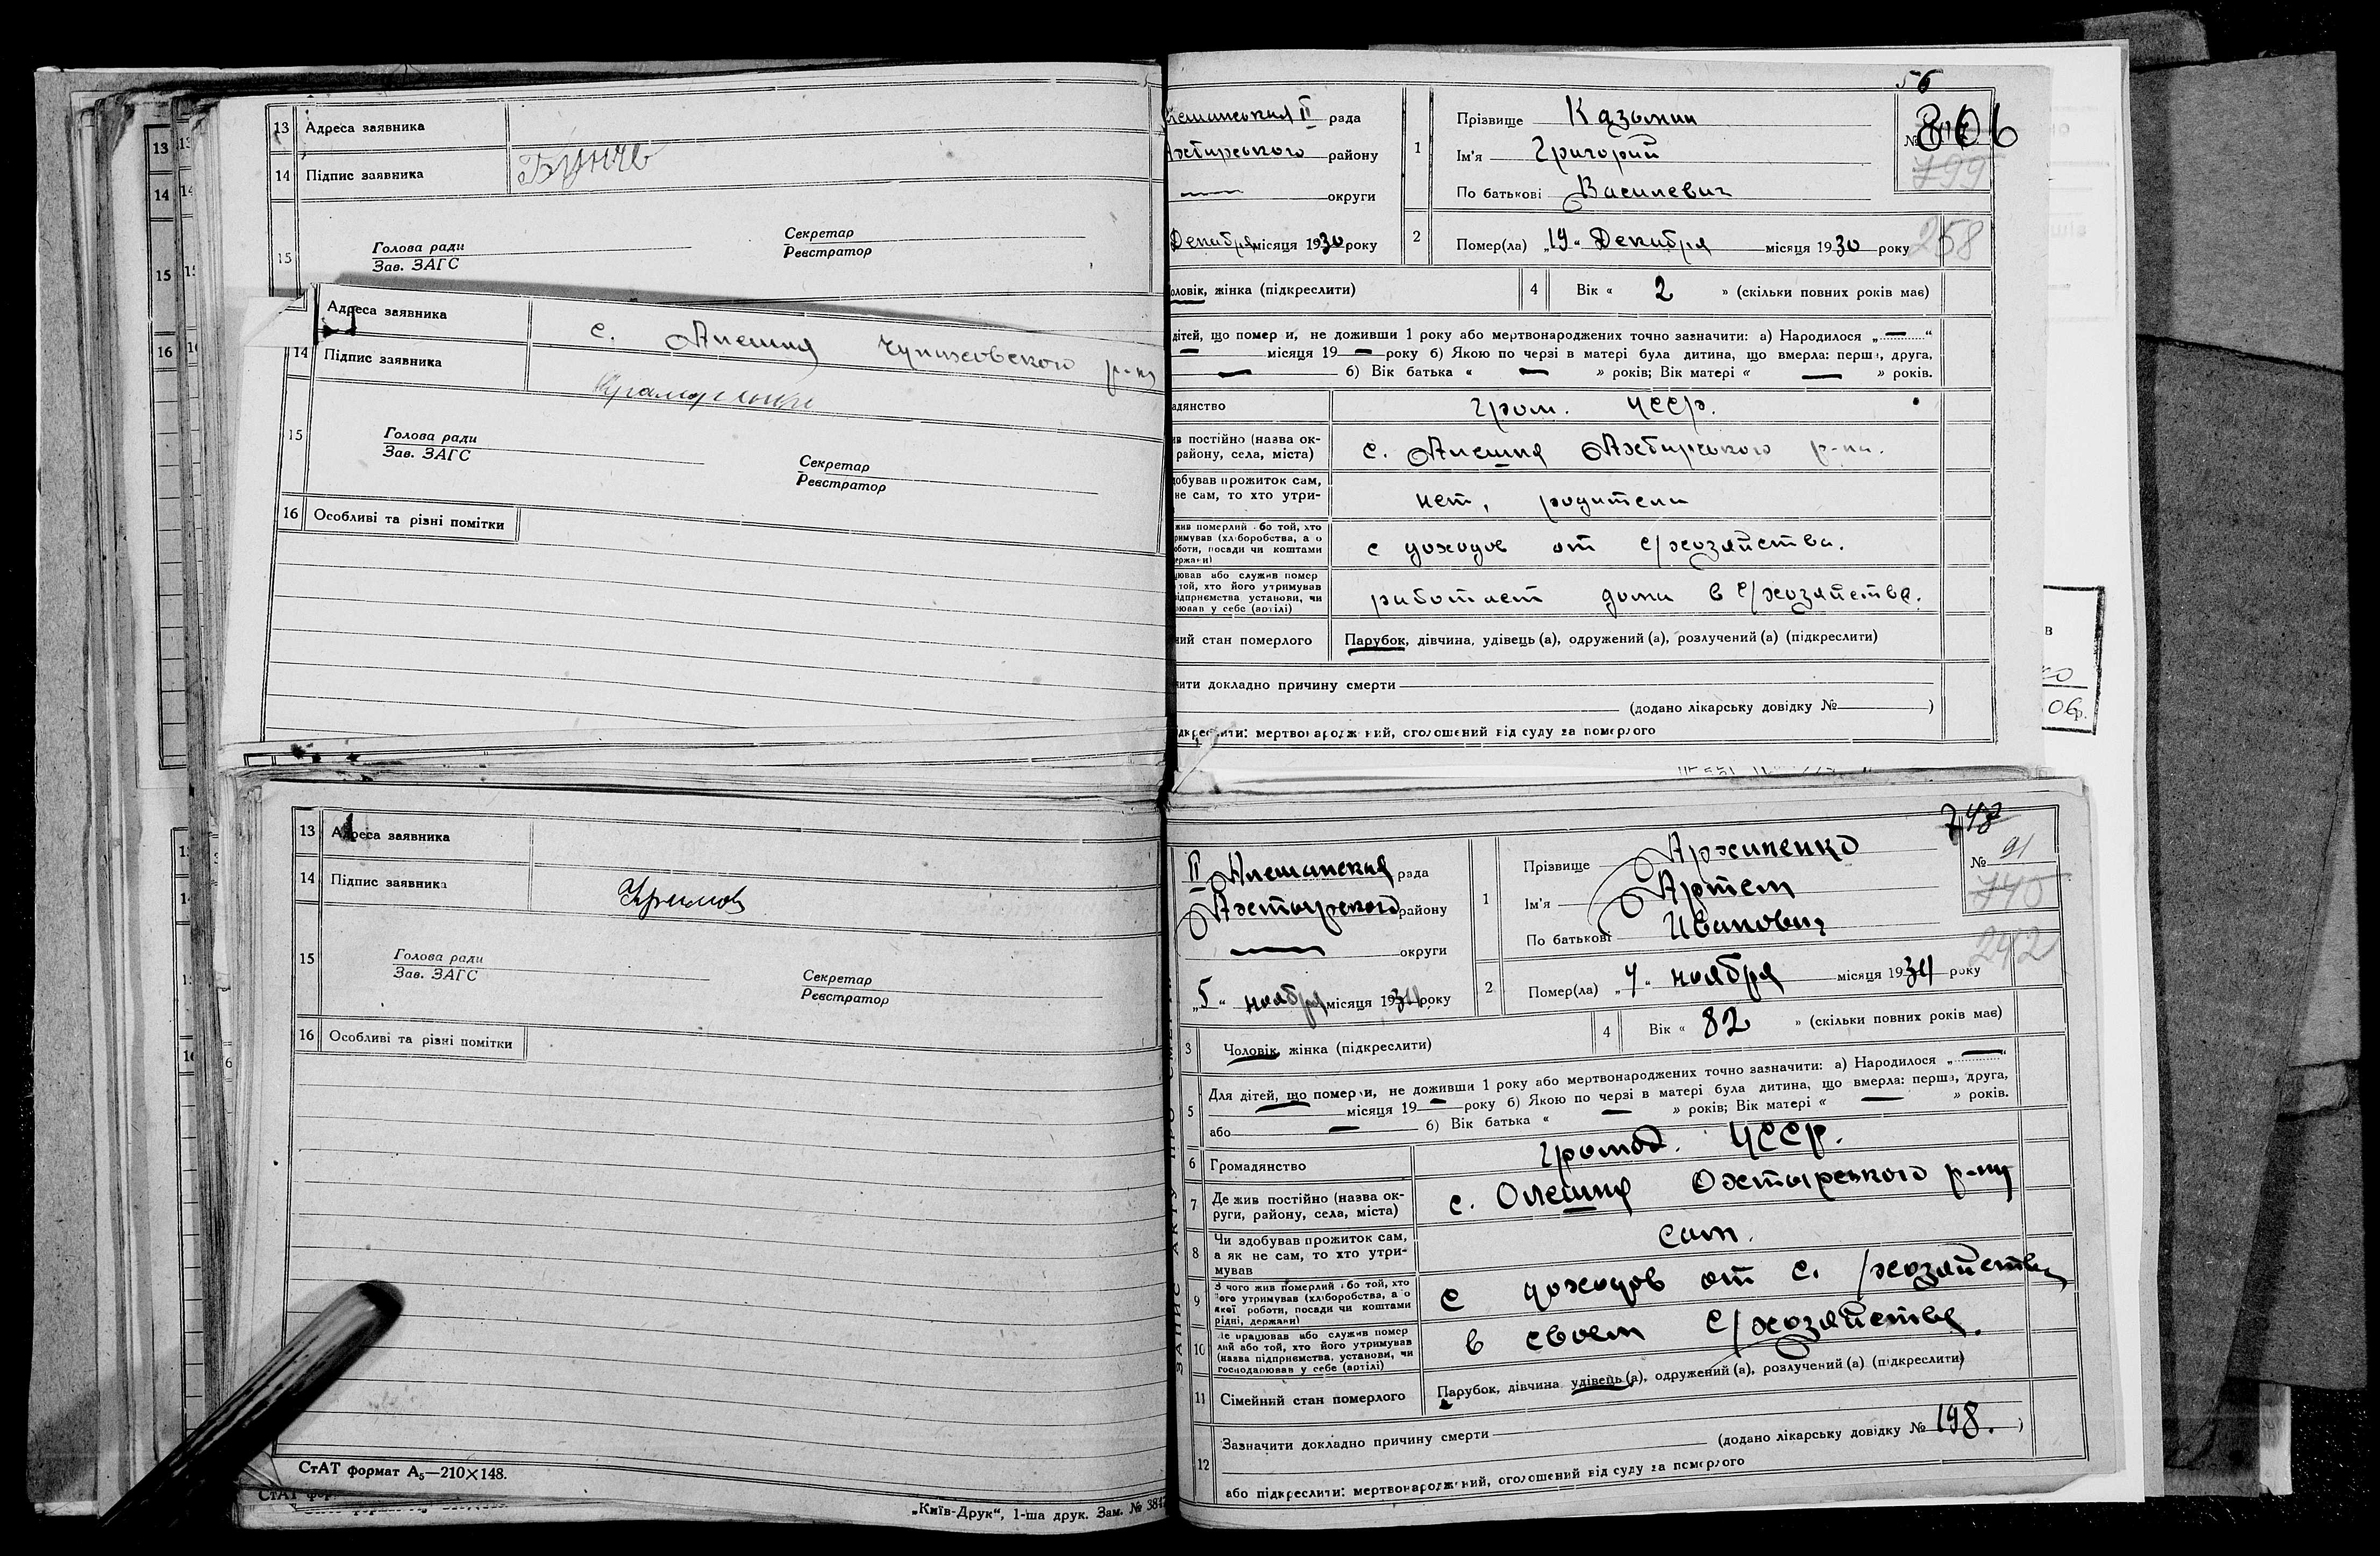 13 Адреса заявника
14 Підпис заявника Бунчв
15 Голова ради Секретар
Зав. ЗАГС Реєстратор
Адреса заявника с. Алешня Чупиховского р-на
14 Підпис заявника
15 Голова ради Секретар
Зав. ЗАГС Реєстратор
16 Особливі та різні помітки
56
рада
Ахтирського району
округи
Декабря місяця 1930 року
1 Прізвище Казьмин
Ім'я Григорий
По батькові Василевич
№ 806
799
2 Помер(ла) „19“ Декабря місяця 1930 року
258
оловік, жінка (підкреслити)
4 Вік « 2 » (скільки повних років має)
дітей, що помер и, не доживши 1 року або мертвонароджених точно зазначити: а) Народилося „ — “
— місяця 19 — року б) Якою по черзі в матері була дитина, що вмерла: перша, друга,
— б) Вік батька « — » років; Вік матері « — » років.
адянство Гром. УССР.
ив постійно (назва ок-
району, села, міста) с. Алешня Ахтирського р-на.
добував прожиток сам,
не сам, то хто утри- нет, родители
жив померлий або той, хто
римував (хліборобства, а о
оботи, посади чи коштами
ержави) с доходов от с/хозяйства.
цював або служив помер
той, хто його утримував
підприємства, установи, чи
рював у себе (артілі) работает дома в с/хозяйстве.
ний стан померлого Парубок, дівчина, удівець (а), одружений (а), розлучений (а) (підкреслити)
чити докладно причину смерти
(додано лікарську довідку № )
ідкреслити: мертвонароджений, оголошений від суду за померлого
13 Адреса заявника
14 Підпис заявника
15 Голова ради Секретар
Зав. ЗАГС Реєстратор
16 Особливі та різні помітки
СтАТ формат А5—210×148.
„Київ-Друк“, 1-ша друк. Зам. № 384
743
II Алешанская рада
Ахтырского району
— округи
„5“ ноября місяця 1934 року
1 Прізвище Архипенко
Ім'я Артем
По батькові Иванович
№ 91
740
2 Помер(ла) „4“ ноября місяця 1934 року
242
3 Чоловік, жінка (підкреслити)
4 Вік « 82 » (скільки повних років має)
5 Для дітей, що померли, не доживши 1 року або мертвонароджених точно зазначити: а) Народилося „ — “
місяця 19 — року б) Якою по черзі в матері була дитина, що вмерла: перша, друга,
або — б) Вік батька « — » років; Вік матері « — » років.
6 Громадянство громад. УССР.
7 Де жив постійно (назва ок-
руги, району, села, міста) с. Олешня Охтырського р-ну
8 Чи здобував прожиток сам,
а як не сам, то хто утри-
мував сам.
9 З чого жив померлий або той, хто
його утримував (хліборобства, а о
якої роботи, посади чи коштами
рідні, держави) с доходов от с./хозяйства
10 Де працював або служив помер
лий або той, хто його утримував
(назва підприємства, установи, чи
господарював у себе (артілі) в своем с/хозяйстве.
11 Сімейний стан померлого Парубок, дівчина, удівець (а), одружений (а), розлучений (а) (підкреслити)
12 Зазначити докладно причину смерти
(додано лікарську довідку № 198. )
або підкреслити: мертвонароджений, оголошений від суду за померлого